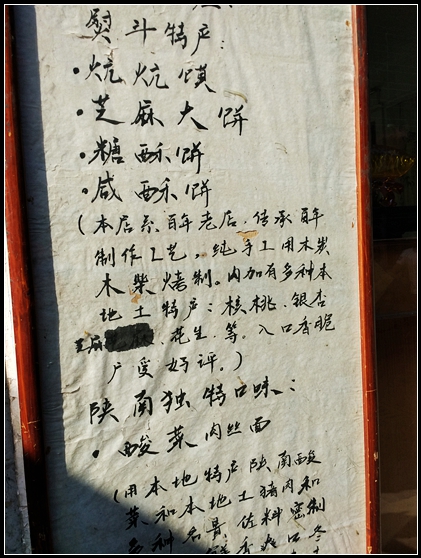 熨斗特产:
·炕炕馍
·芝麻大饼
·糖酥饼
·咸酥饼
(本店系百年老店.传承百年
制作工艺,纯手工用木炭
木柴烤制.内加有多种本
地土特产:核桃.银杏
芝麻 .花生.等。入口香脆
广受好评。)
陕南独特口味:
·酸菜肉丝面
(用本地特产陕南酸
菜和本地土猪肉和
多种名贵佐料密制